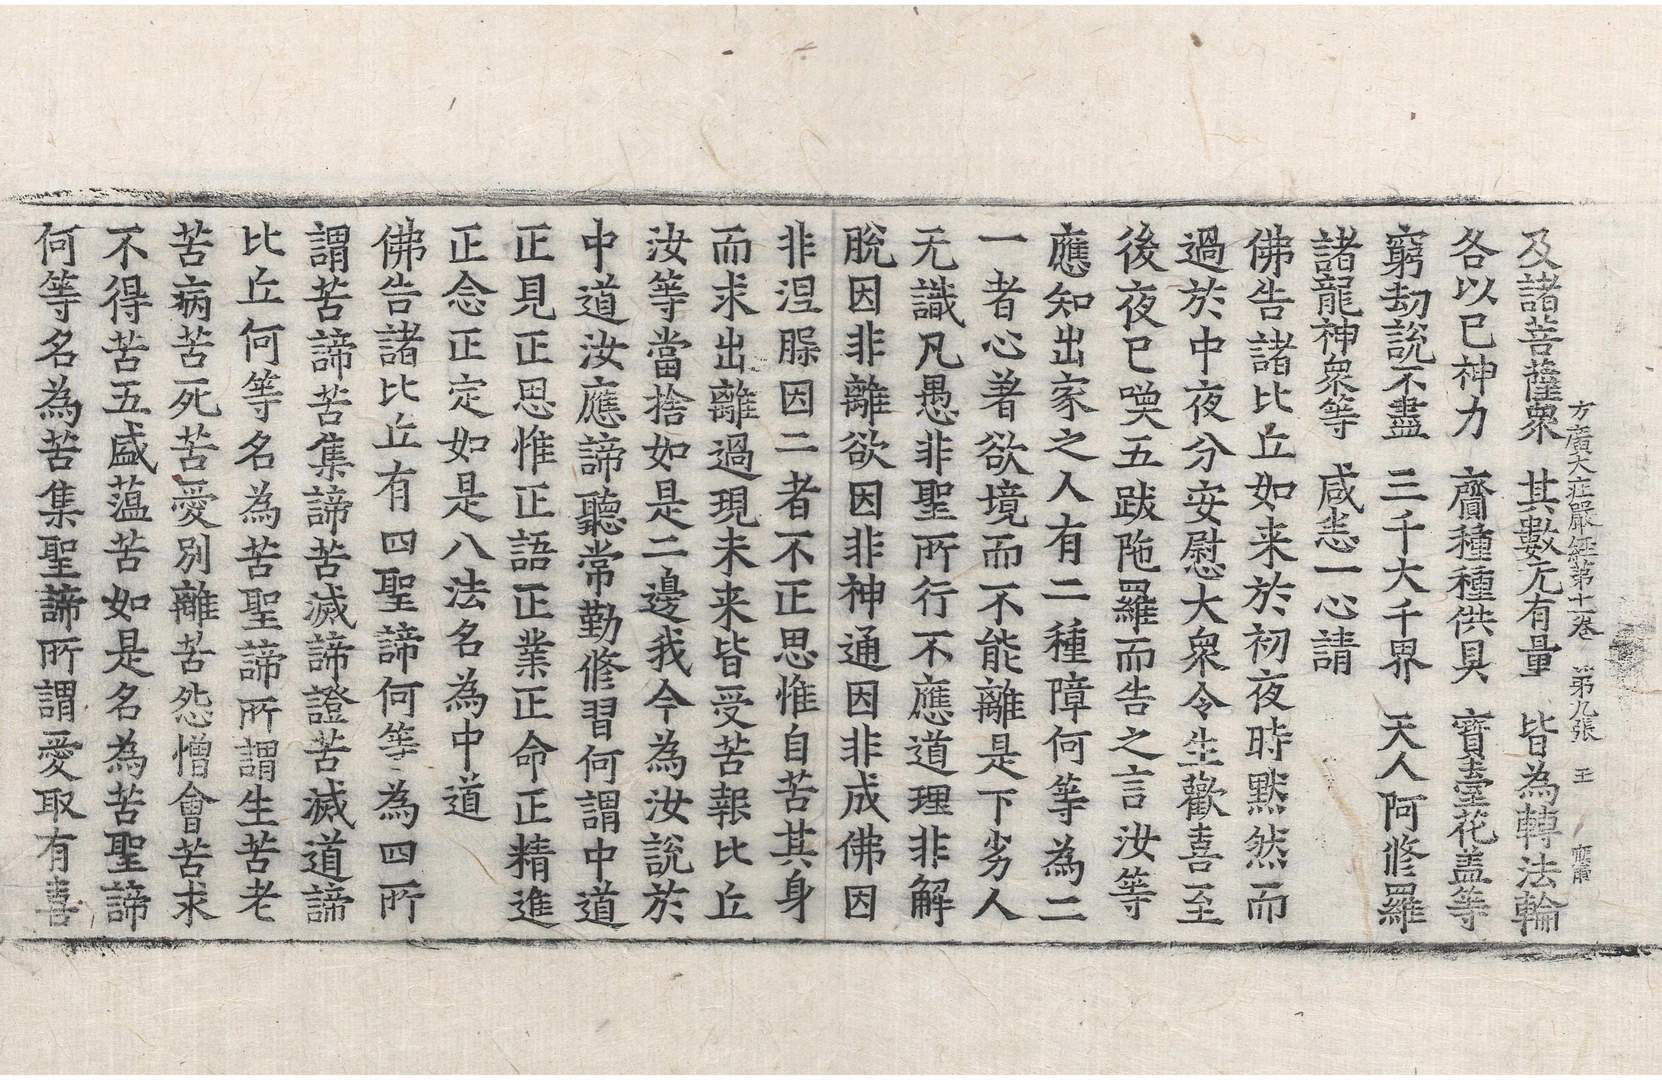 方廣大莊嚴經第十一卷 第九張 王
及諸菩薩衆 其數无有量 皆為轉法輪
各以已神力 齎種種供具 寶臺花盖等
窮劫說不盡 三千大千界 天人阿修羅
諸龍神衆等 咸恙一心請
佛告諸比丘如来於初夜時默然而
過於中夜分安慰大衆令生歡喜至
後夜已喚五跋陁羅而告之言汝等
應知出家之人有二種障何等為二
一者心著欲境而不能離是下劣人
无識凡愚非聖所行不應道理非解
脫因非離欲因非神通因非成佛因
非涅槃因二者不正思惟自苦其身
而求出離過現未来皆受苦報比丘
汝等當捨如是二邊我今為汝說於
中道汝應諦聽常勤修習何謂中道
正見正思惟正語正業正命正精進
正念正定如是八法名為中道
佛告諸比丘有四聖諦何等為四所
謂苦諦苦集諦苦滅諦證苦滅道諦
比丘何等名為苦聖諦所謂生苦老
苦病苦死苦愛別離苦怨憎會苦求
不得苦五盛薀苦如是名為苦聖諦
何等名為苦集聖諦所謂愛取有喜